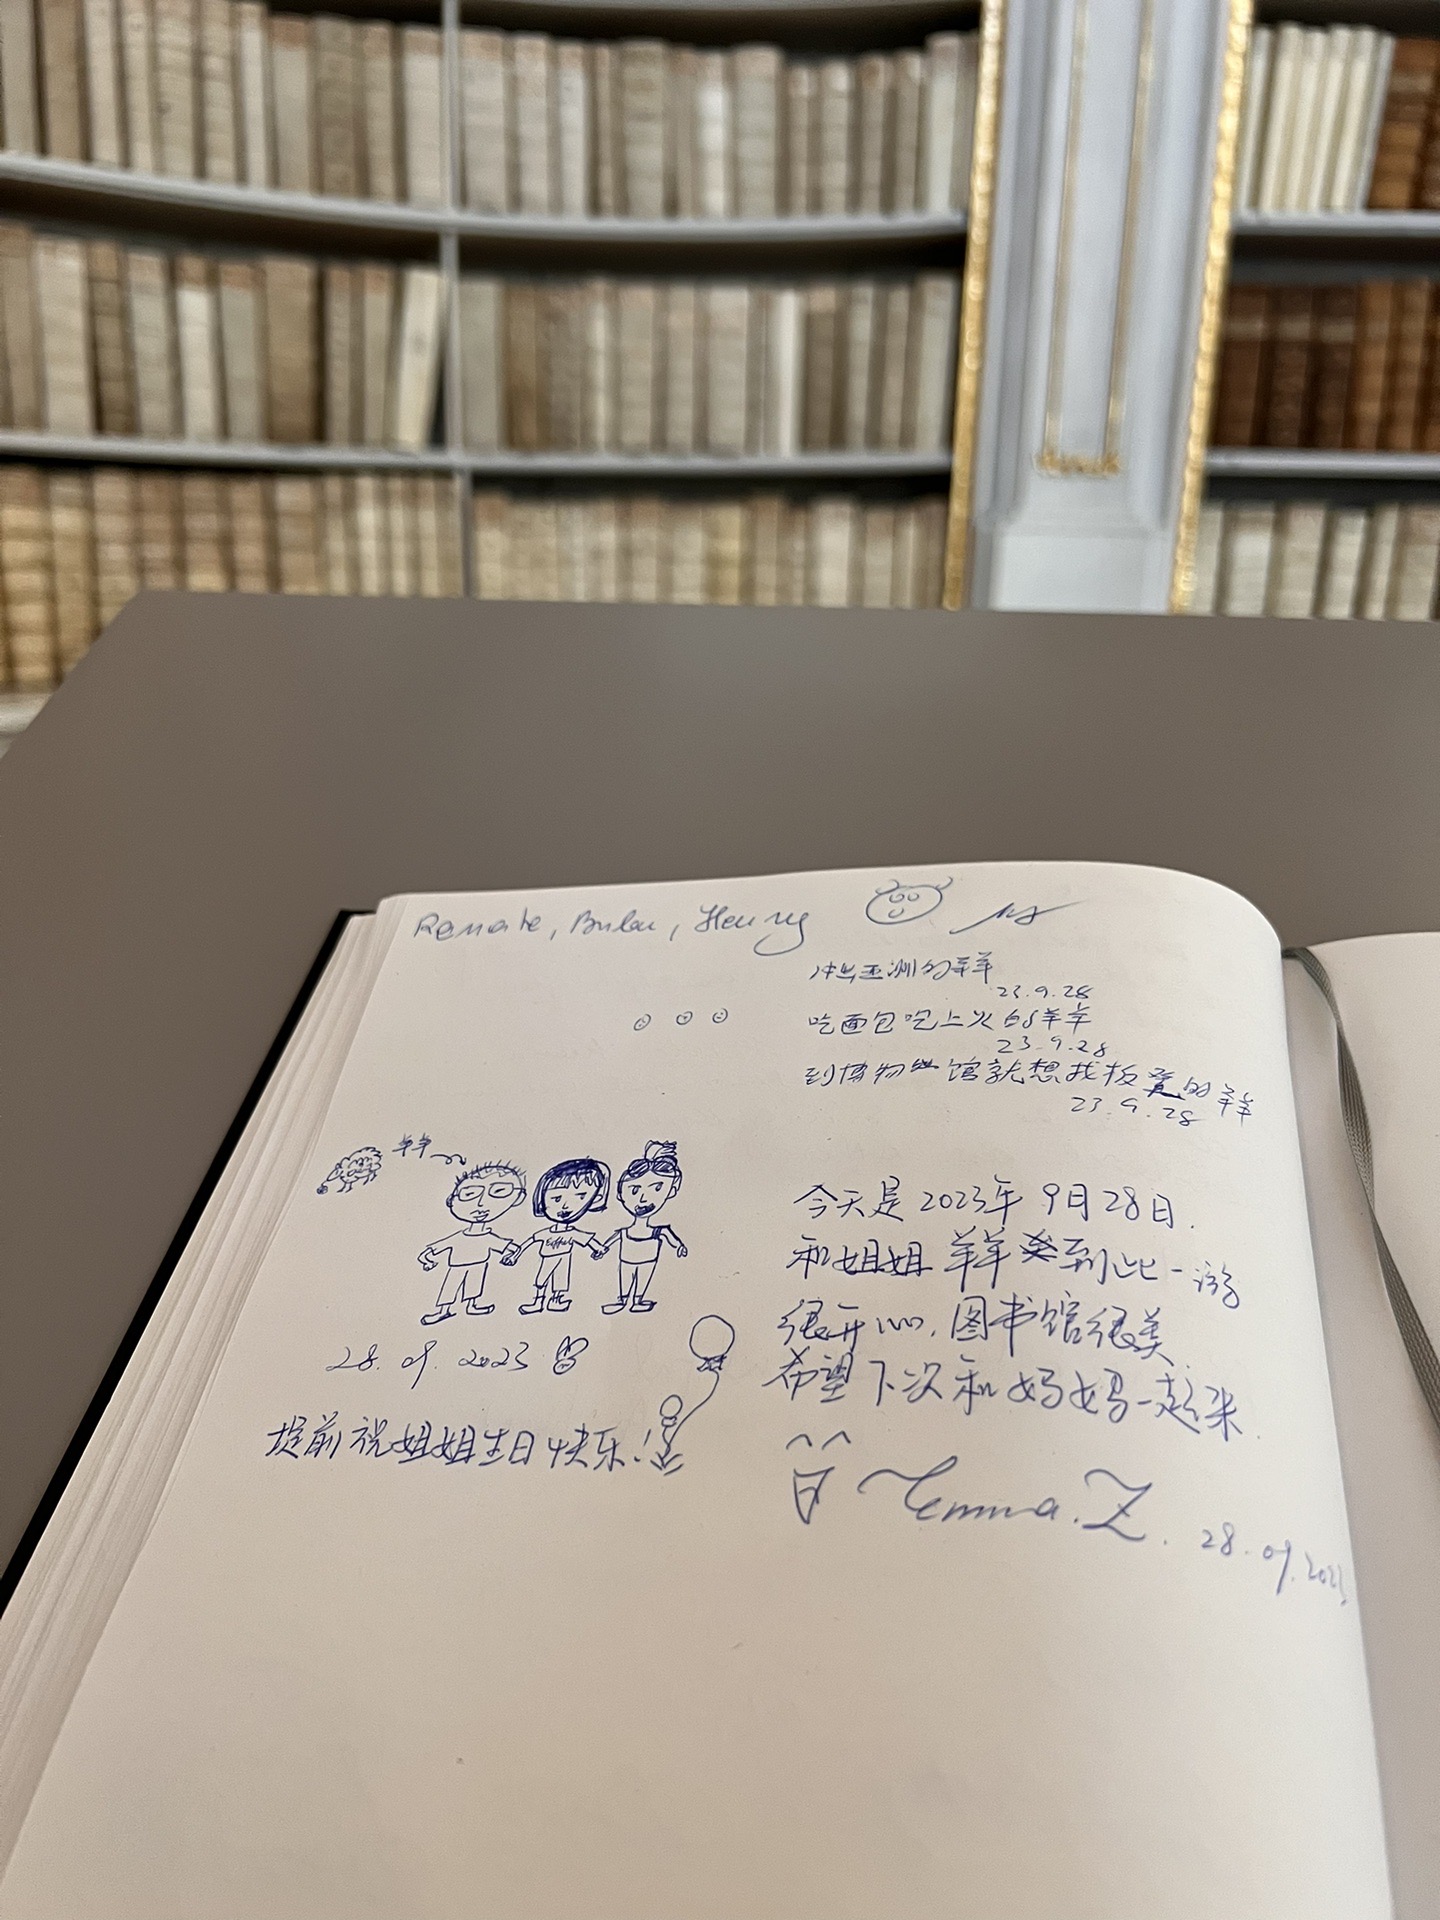 Renate, , Henry
冲出亚洲的羊羊
23.9.28
吃面包吃上火的羊羊
23.9.28
到博物馆就想找板凳的羊羊
23.9.28
羊羊
28.09.2023
提前祝姐姐生日快乐!
今天是2023年9月28日.
和姐姐 羊羊 到此一游
很开心,图书馆很美
希望下次和妈妈一起来
Yemma.Z. 28.09.2023